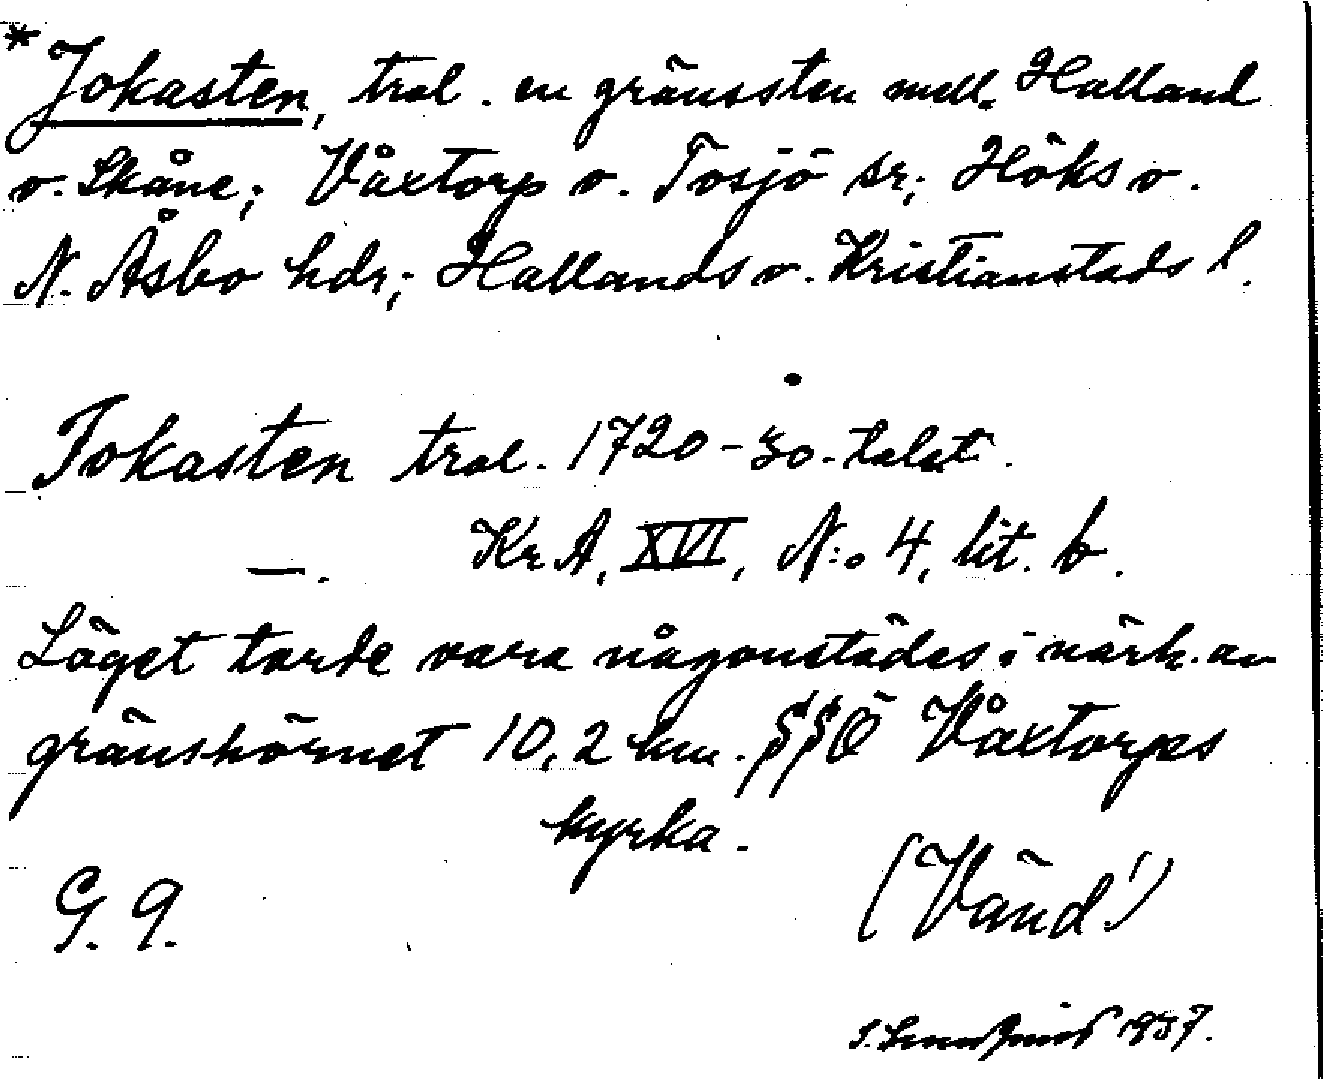 * Jokasten, trol. en gränssten mell. Halland
o. Skåne; Våxtorp o. Tosjö sr; Höks o.
N. Åsbo hdr; Hallands o. Kristianstads l.
Jokasten trol. 1720-30-talet.
—. Kr A, XVI, N:o 4, lit. b.
Läget torde vara någonstädes i närh. av
gränshörnet 10,2 km. SSÖ Våxtorps
kyrka.
G. 9. (Vänd!)
S. 1937.